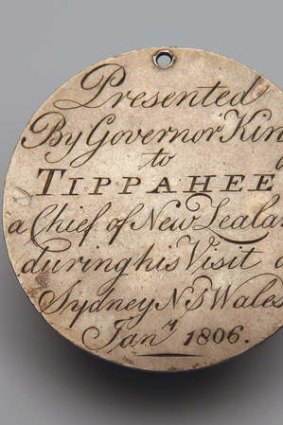 Presented
By Governor Kin
to
TIPPAHEE
a Chief of New Zeala
during his Visit a
Sydney N S Wales
Janʸ 1806.